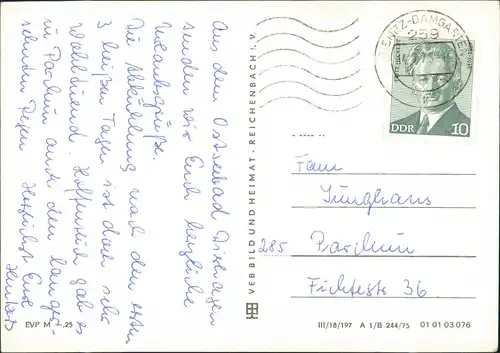 Aus dem Ostseebad Dierhagen
senden wir Euch herzliche
Urlaubsgrüße.
Die Abkühlung nach den ersten
3 heißen Tagen ist doch sehr
wohltuend. Hoffentlich gab es
in Parchim auch den langer-
sehnten Regen. Herzlichst Eure
EVP M -,25
VEB BILD UND HEIMAT · REICHENBACH I. V.
RIBNITZ-DAMGARTEN
259
DDR 10
Fam
Junghans
285 Parchim
Fichtestr 36
III/18/197 A 1/B 244/75 01 01 03 076